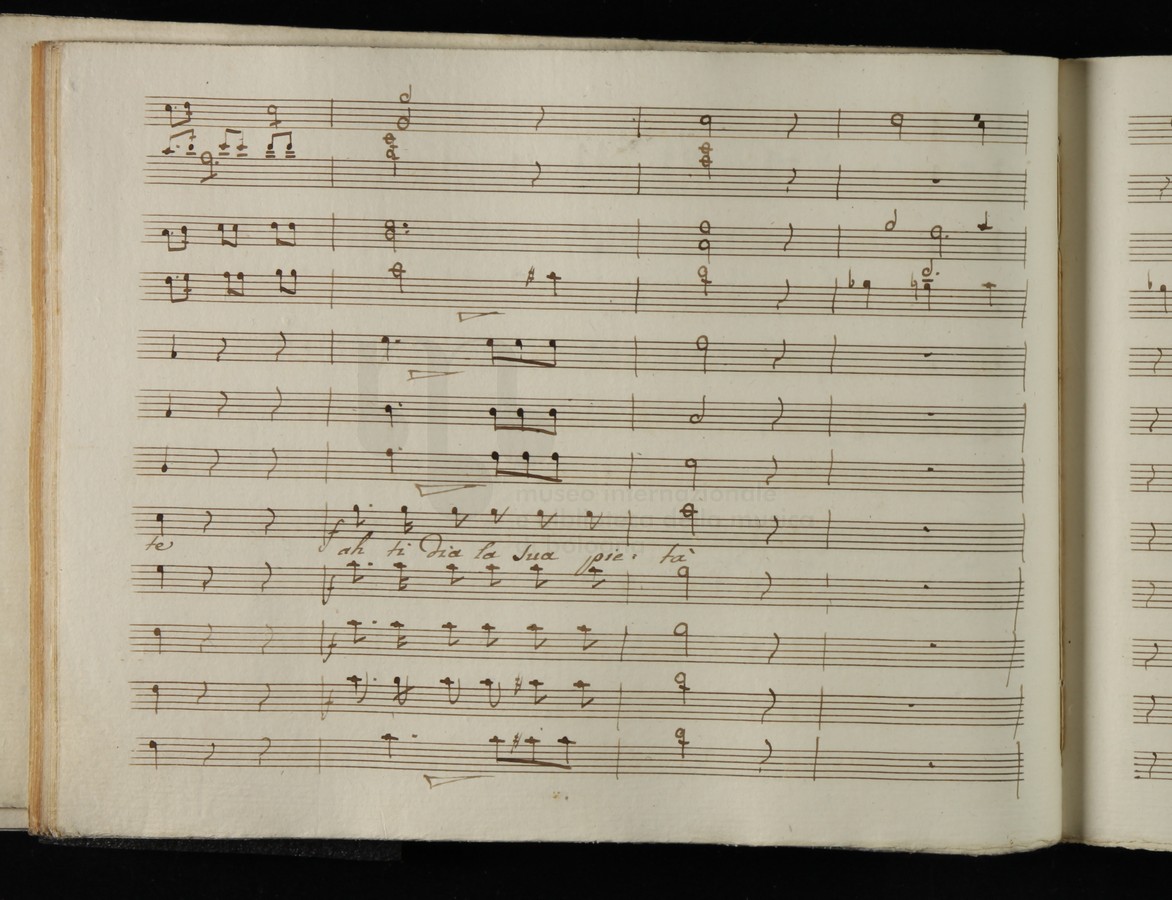 te ah ti dia la sua pie: tà
museo internazionale
e biblioteca della musica
di bologna